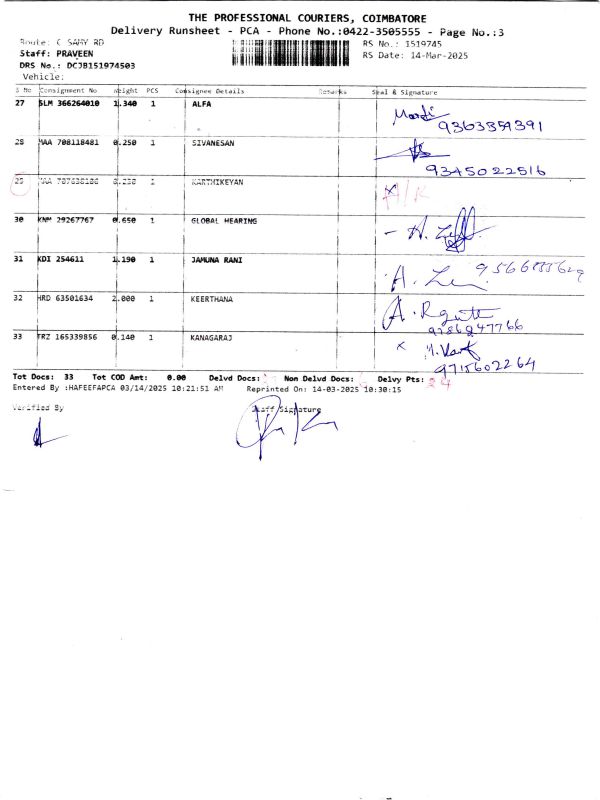 THE PROFESSIONAL COURIERS, COIMBATORE
Delivery Runsheet - PCA - Phone No.:0422-3505555 - Page No.:3
Route: C SAMY RD RS No.: 1519745
Staff: PRAVEEN RS Date: 14-Mar-2025
DRS No.: DCJB151974503
Vehicle:
S No Consignment No Weight PCS Consignee Details Remarks Seal & Signature
27 SLM 366264010 1.340 1 ALFA
9363359391
28 MAA 708118481 0.250 1 SIVANESAN
9345022516
29 MAA 787638186 1 KARTHIKEYAN
30 KNM 29267767 0.650 1 GLOBAL HEARING
31 KDI 254611 1.190 1 JAMUNA RANI
32 HRD 63501634 2.000 1 KEERTHANA
9786247766
33 TRZ 165339856 0.140 1 KANAGARAJ
9715602264
Tot Docs: 33 Tot COD Amt: 0.00 Delvd Docs: Non Delvd Docs: Delvy Pts: 24
Entered By :HAFEEFAPCA 03/14/2025 10:21:51 AM Reprinted On: 14-03-2025 10:30:15
Verified By Staff Signature